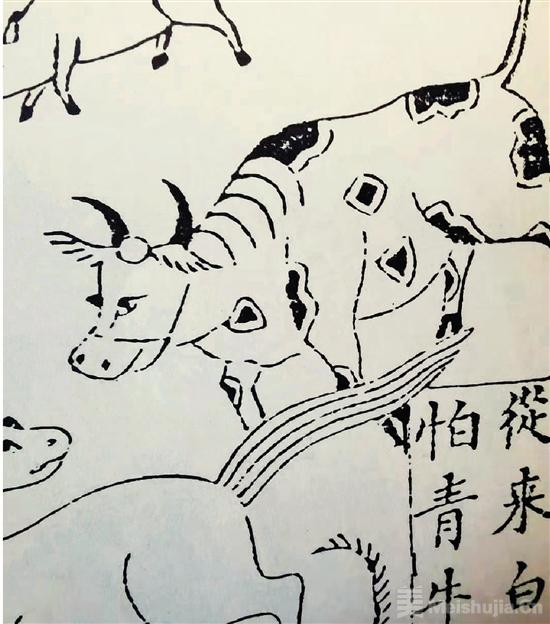 從来白
怕青牛
美 Meishujia.cn